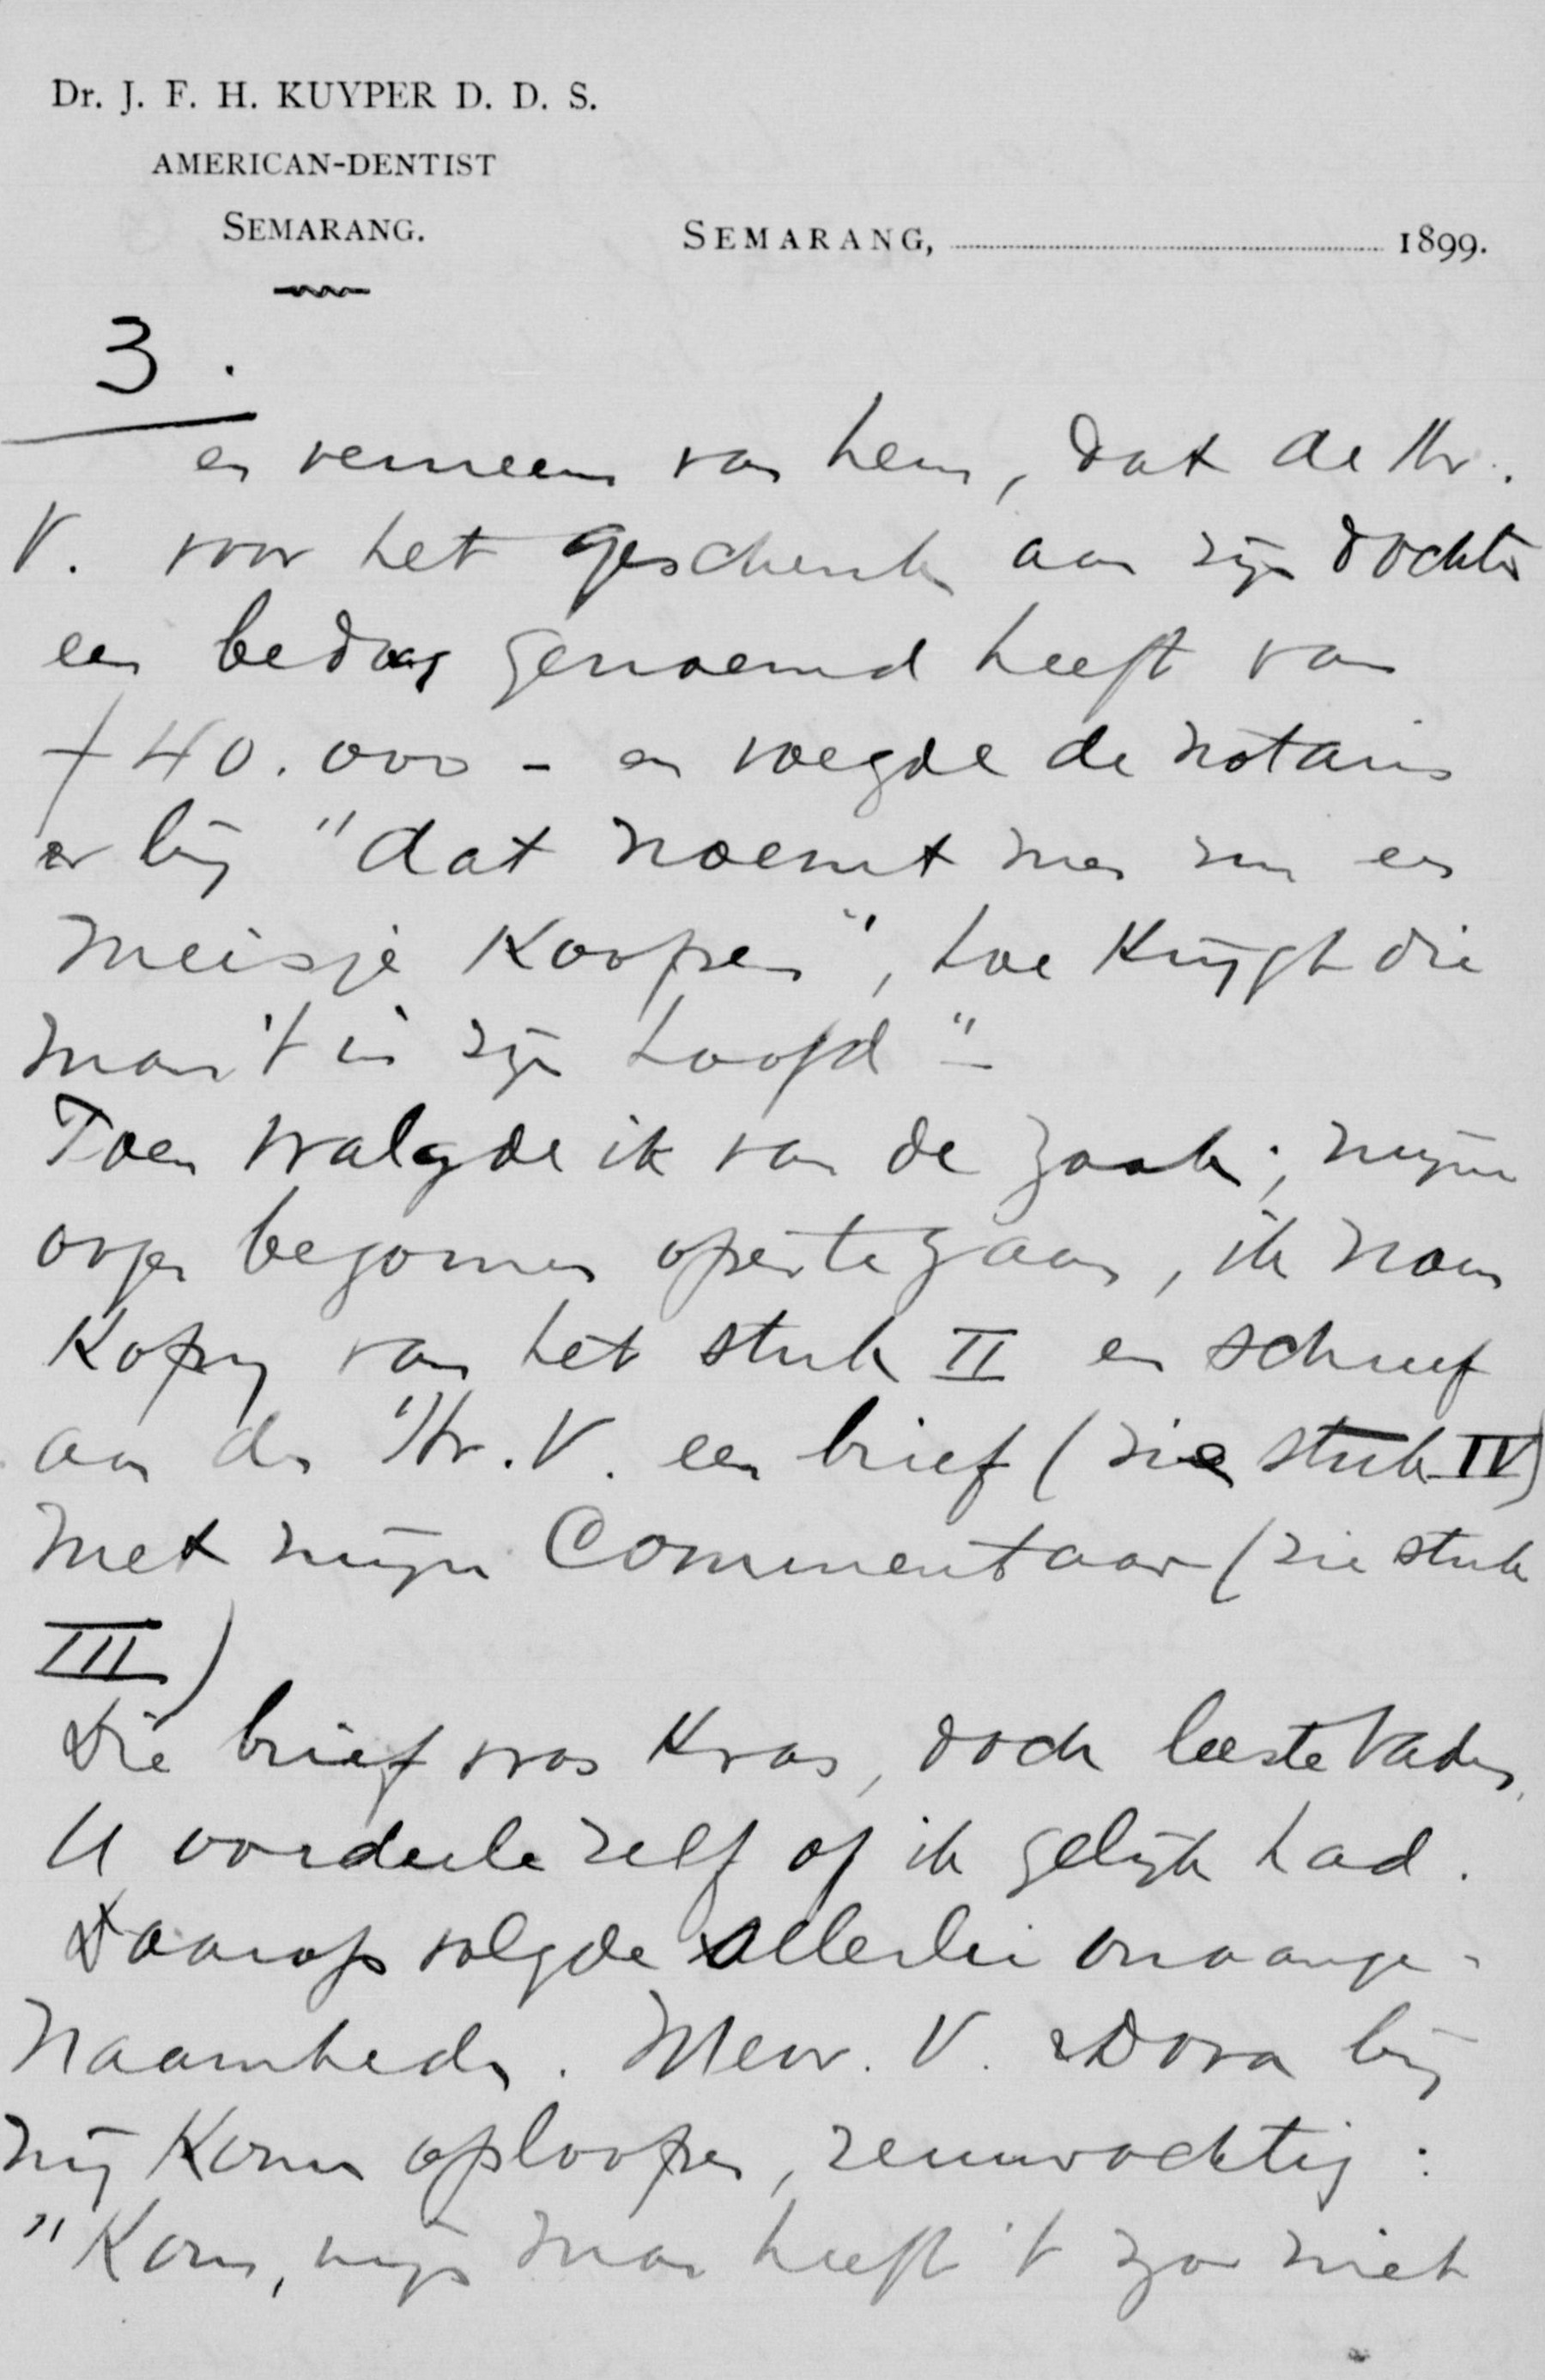 Dr. J. F. H. KUYPER D. D. S.
AMERICAN-DENTIST
SEMARANG.
SEMARANG, 1899.
3.
en verneem van hem, dat de Hr.
V. voor het geschenk aan zijn dochter
een bedrag genoemd heeft van
ƒ 40.000 - en voegde de notaris
er bij "dat noemt men nu een
meisje koopen", hoe krijgt die
man 't in zijn hoofd"-
Toen walgde ik van de zaak; mijne
oogen begonnen open te gaan, ik nam
kopij van het stuk II en schreef
aan den Hr. V. een brief (zie stuk IV)
met mijn Commentaar (zie stuk
III)
Die brief was kras, doch beste Vader,
U oordeele zelf of ik gelijk had.
Daarop volgde allerlei onaange-
naamheden. Mevr. V. Dora bij
mij komen oploopen, zenuwachtig:
"Kom, mijn man heeft 't zoo niet